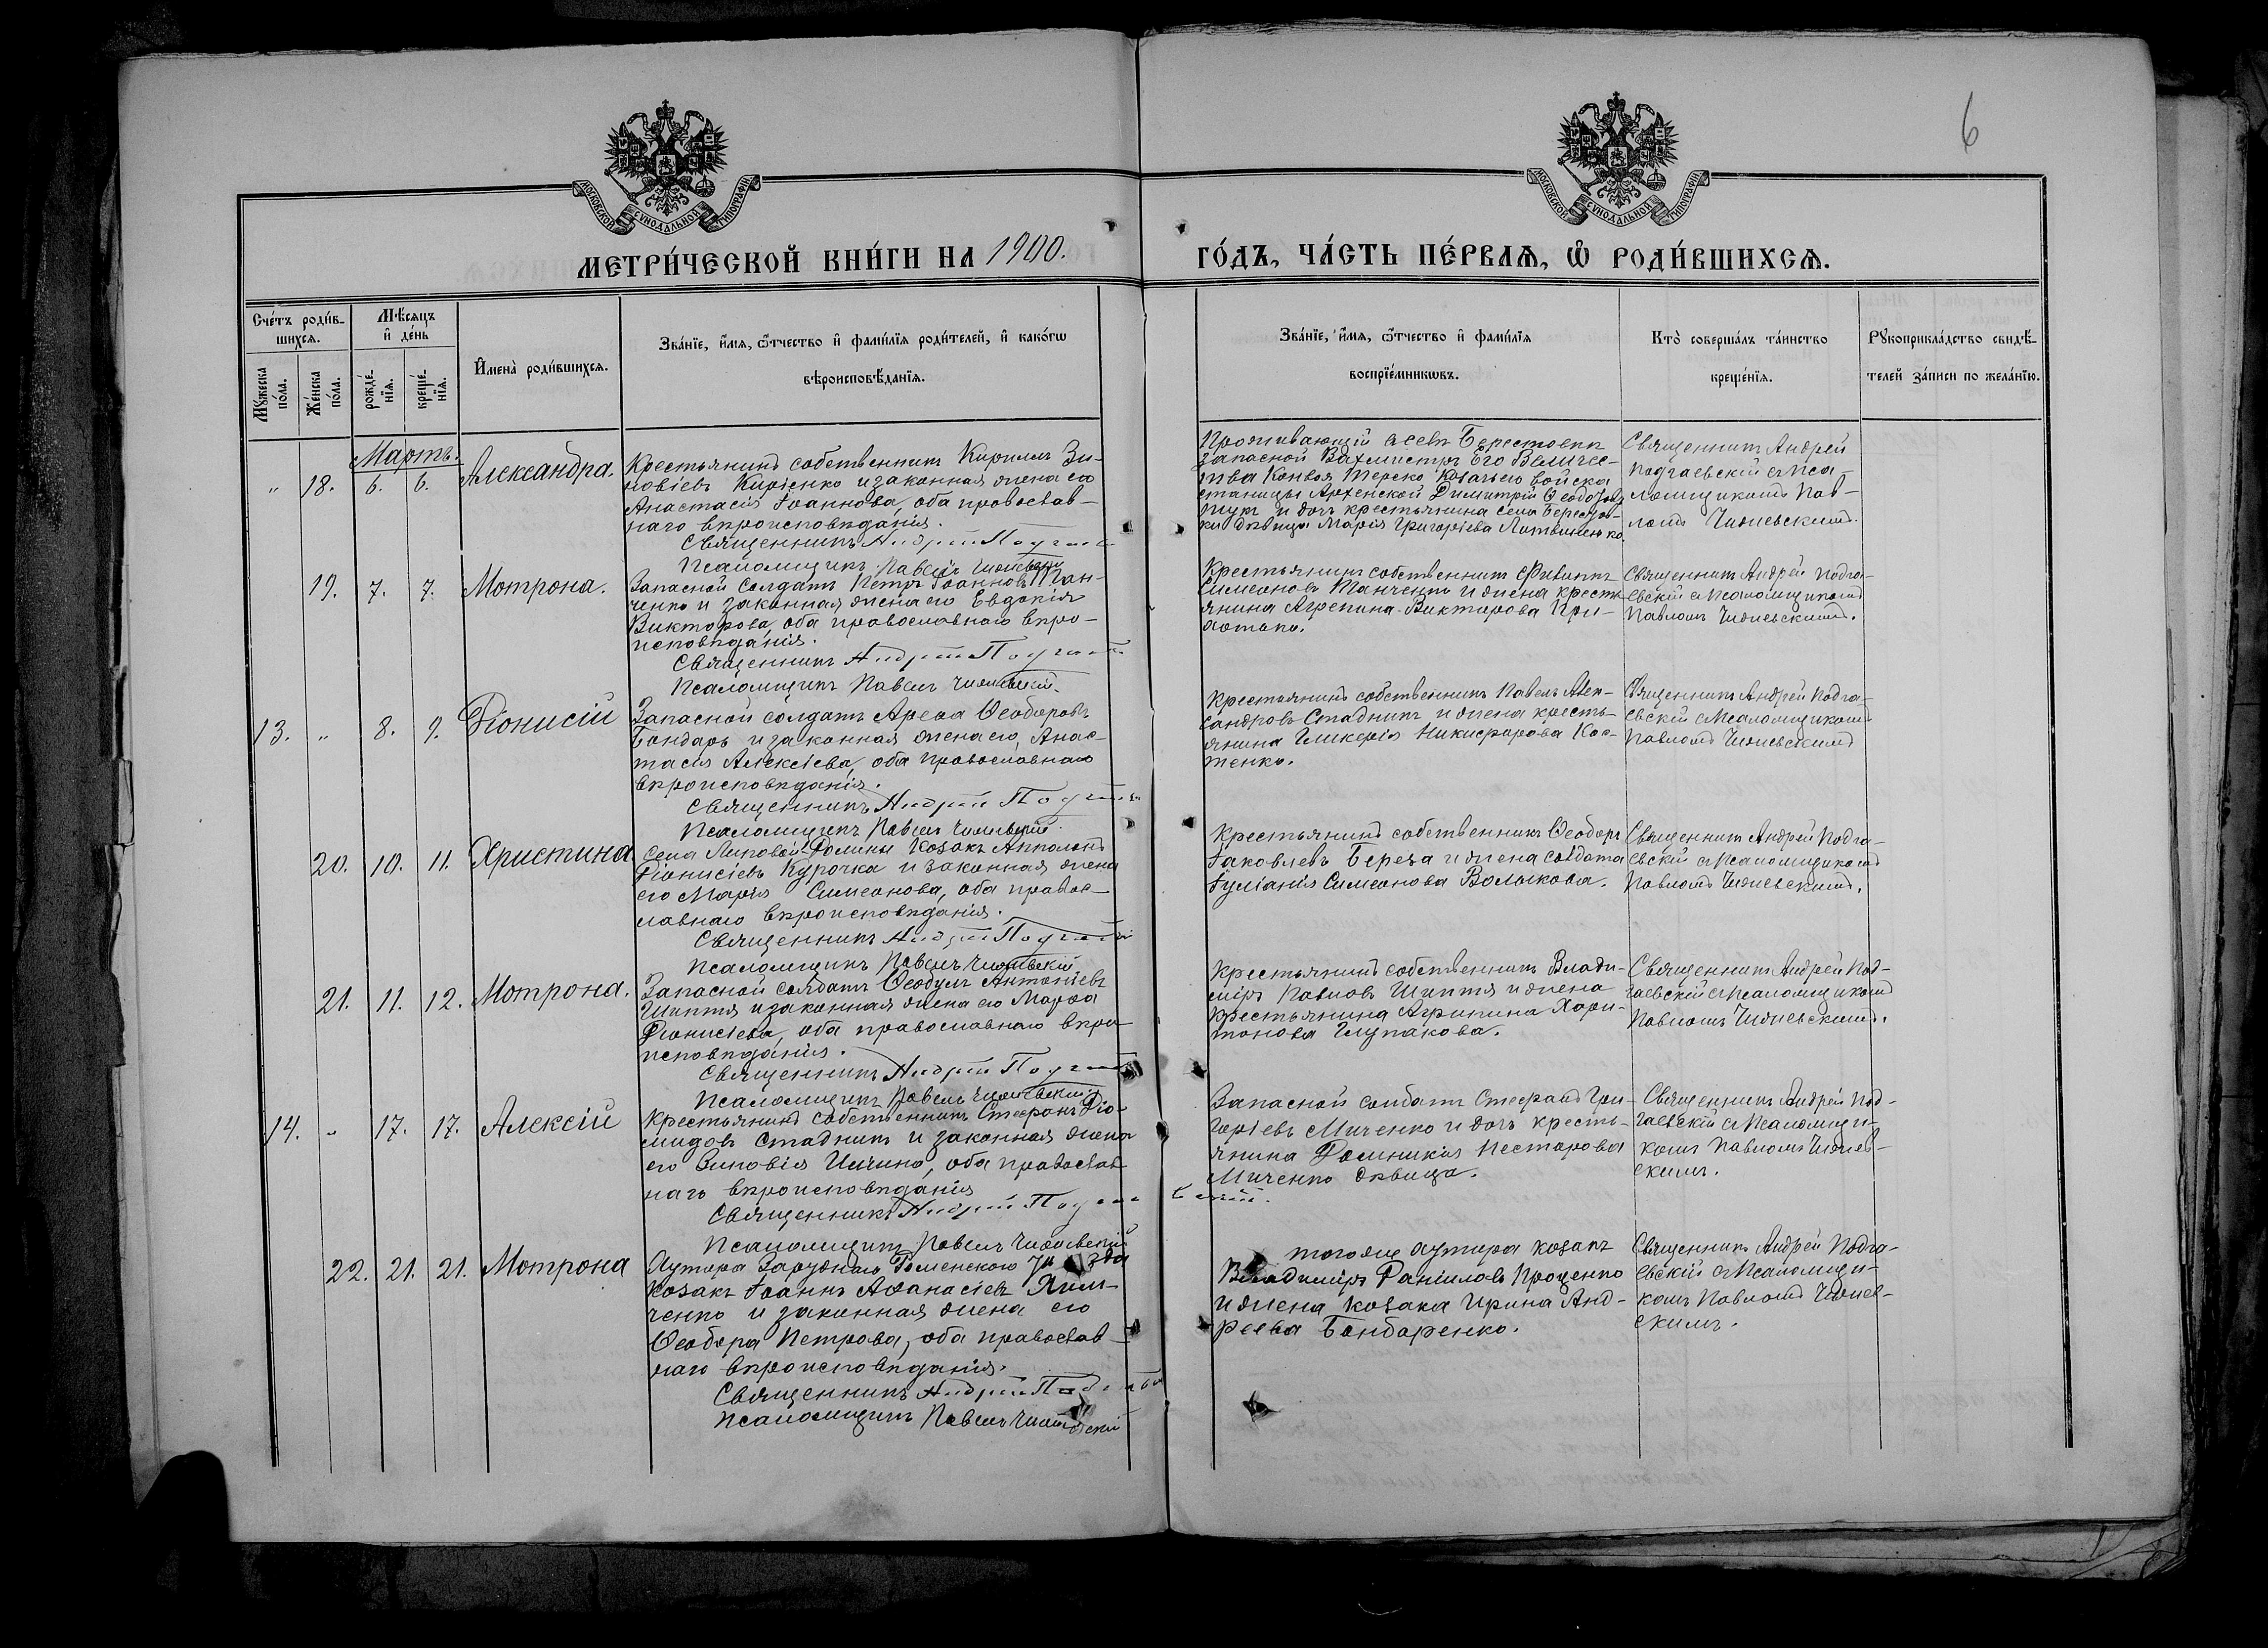 6
МОСКОВСКОЙ СУНОДАЛЬНОЙ ТИПОГРАФІИ
МОСКОВСКОЙ СУНОДАЛЬНОЙ ТИПОГРАФІИ
МЕТРИ́ЧЕСКОЙ КНИ́ГИ НА 1900.
ГО́ДЪ, ЧА́СТЬ ПЕ́РВАѦ, Ѡ РОДИ́ВШИХСѦ.
Сче́тъ роди́в-
шихсѧ.
Мꙋ́жеска по́ла.
Же́нска по́ла.
Мѣ́сяцъ
и҆ де́нь
рожде́-
нїѧ.
креще́-
нїѧ.
И҆мена̀ роди́вшихсѧ.
Зва́нїе, и҆́мѧ, ѻ҆́тчество и҆ фами́лїѧ роди́телей, и҆ како́гѡ
вѣроисповѣ́данїѧ.
Зва́нїе, и҆́мѧ, ѻ҆́тчество и҆ фами́лїѧ
воспрїе́мникѡвъ.
Кто̀ соверша́лъ та́инство
креще́нїѧ.
Рꙋкоприкла́дство свидѣ́-
телей за́писи по жела́нїю.
Мартъ.
„ 18. 6. 6. Александра.
Крестьянинъ собственникъ Кириллъ Зи-
новіевъ Киріенко и законная жена его
Анастасія Іоаннова, оба православ-
наго вѣроисповѣданія.
Священникъ Андрей
Псаломщикъ Павелъ
Проживающій въ селѣ Берестовкѣ
запасной Вахмистръ Его Величес-
тва Конвоя Терско Козачьего войска
станицы Димитрій
и дочь крестьянина села Берестов-
ки дѣвица Марія Григоріева Литвиненкова.
Священникъ Андрей
Подгаевскій съ Пса-
ломщикомъ Пав-
ломъ
19. 7. 7. Мотрона.
Запасной солдатъ Петръ Іоанновъ Тан-
ченко и законная жена его Евдокія
Викторова, оба православнаго вѣро-
исповѣданія.
Священникъ Андрей
Псаломщикъ Павелъ
Крестьянинъ собственникъ
Симеоновъ Танченко и жена кресть-
янина Агрепина Викторова При-
ходько.
Священникъ Андрей Подга-
евскій съ Псаломщикомъ
Павломъ
13. „ 8. 9. Діонисій
Запасной солдатъ Арефа Ѳеодоровъ
Бондарь и законная жена его, Анас-
тасія Алексіева, оба православнаго
вѣроисповѣданія.
Священникъ Андрей
Псаломщикъ Павелъ
Крестьянинъ собственникъ Павелъ Алек-
сандровъ Стадникъ и жена кресть-
янина Гликерія Никифорова Кос-
тенко.
Священникъ Андрей Подга-
евскій съ Псаломщикомъ
Павломъ
20. 10. 11. Христина
Села Липовой-Долины козакъ Апполонъ
Діонисіевъ Курочка и законная жена
его Марія Симеонова, оба правос-
лавнаго вѣроисповѣданія.
Священникъ Андрей
Псаломщикъ Павелъ
Крестьянинъ собственникъ Ѳеодоръ
Іаковлевъ Береза и жена солдата
Іуліанія Симеонова Волыкова.
Священникъ Андрей Подга-
евскій съ Псаломщикомъ
Павломъ
21. 11. 12. Мотрона.
Запасной солдатъ Ѳеодулъ Антоніевъ
Шиптя и законная жена его Марѳа
Діонисіева, оба православнаго вѣро-
исповѣданія.
Священникъ Андрей
Псаломщикъ Павелъ
Крестьянинъ собственникъ Влади-
міръ Павловъ Шиптя и жена
крестьянина Агрипина Хари-
тонова Глупакова.
Священникъ Андрей Под-
гаевскій съ Псаломщикомъ
Павломъ
14. „ 17. 17. Алексій
Крестьянинъ собственникъ Стефанъ Діо-
мидовъ Стадникъ и законная жена
его Зиновія Ильина, оба православ-
наго вѣроисповѣданія
Священникъ Андрей
Псаломщикъ Павелъ
Запасной солдатъ Стефанъ Гри-
горіевъ Миченко и дочь кресть-
янина Домникія Несторова
Миченко дѣвица.
Священникъ Андрей Под-
гаевскій съ Псаломщи-
комъ Павломъ
22. 21. 21. Мотрона
Хутора Заруднаго Роменскаго уѣзда
козакъ Іоаннъ Аѳанасіевъ
и законная жена его
Ѳеодора Петрова, оба православ-
наго вѣроисповѣданія.
Священникъ Андрей
Псаломщикъ Павелъ
того же хутора козакъ
Владиміръ Даніиловъ Проценко
и жена козака Ирина Анд-
реева Бондаренко.
Священникъ Андрей Подга-
евскій съ Псаломщи-
комъ Павломъ